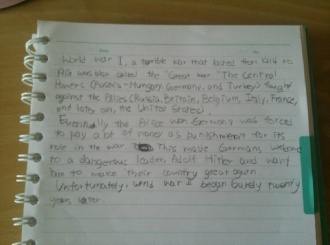 World War I, a terrible war that lasted from 1914 to
1918 was also called the "Great War." The Central
Powers (Austria-Hungary, Germany, and Turkey) fought
against the Allies (Russia, Britain, Belgium, Italy, France,
and later on, the United States)
Eventually the Allies won. Germany was forced
to pay a lot of money as punishment for its
role in the war. This made Germans welcome
to a dangerous leader, Adolf Hitler and want
him to make their country great again
Unfortunately, World War II began barely twenty
years later.